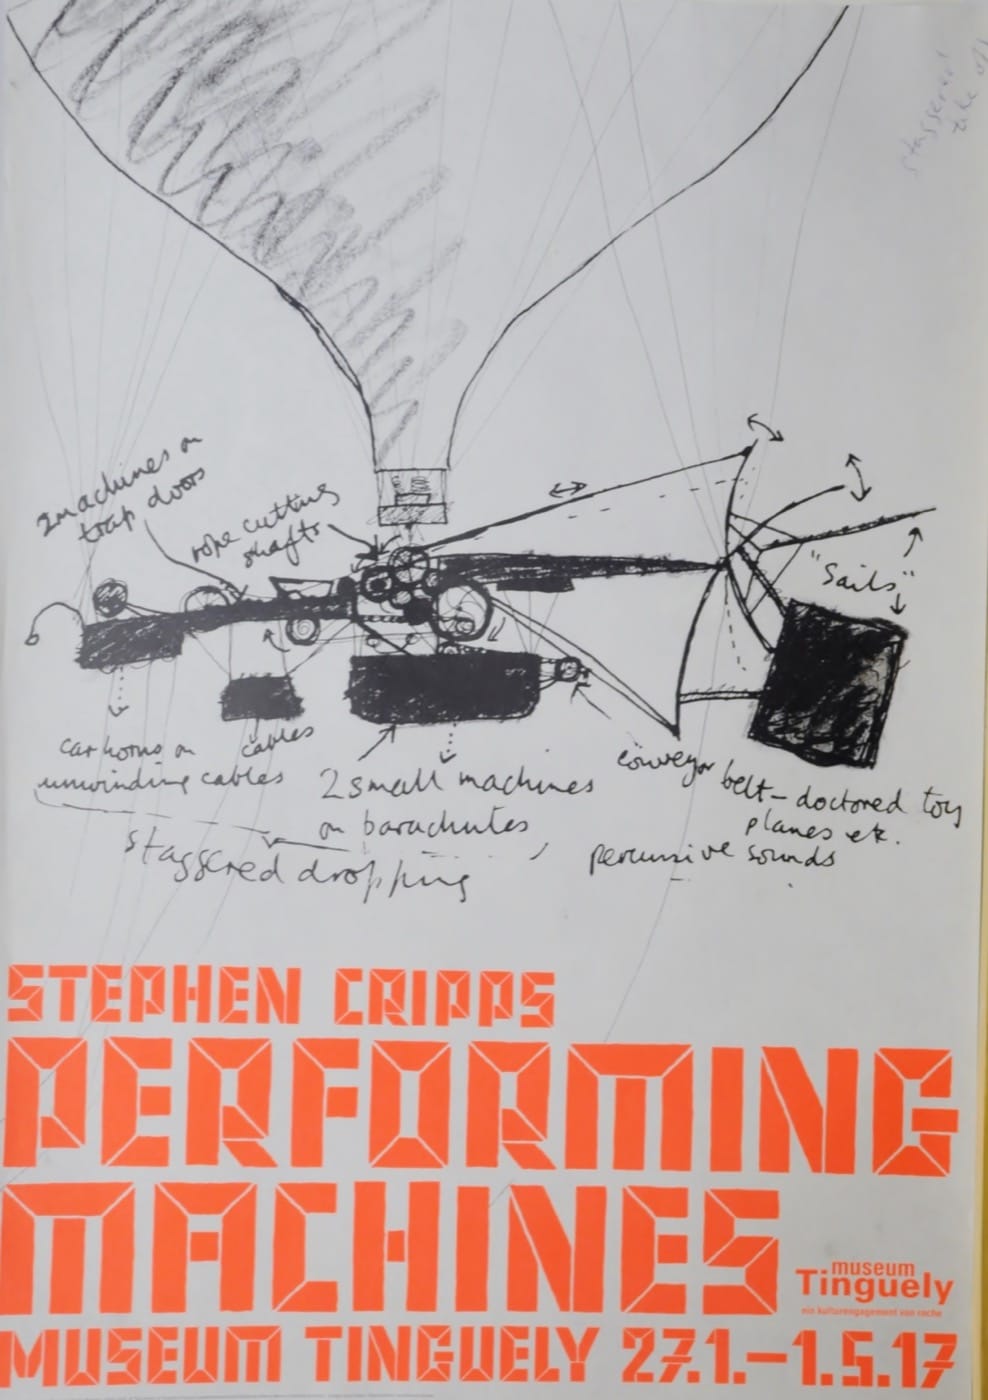 staggered
take off
2 machines on
trap doors
rope cutting
shafts
"Sails"
car horns on
unwinding cables
cables
2 small machines
on parachutes
staggered dropping
conveyor belt - doctored toy
planes etc.
percussive sounds
STEPHEN CRIPPS
PERFORMING
MACHINES
museum
Tinguely
ein kulturengagement von roche
MUSEUM TINGUELY 27.1.–1.5.17